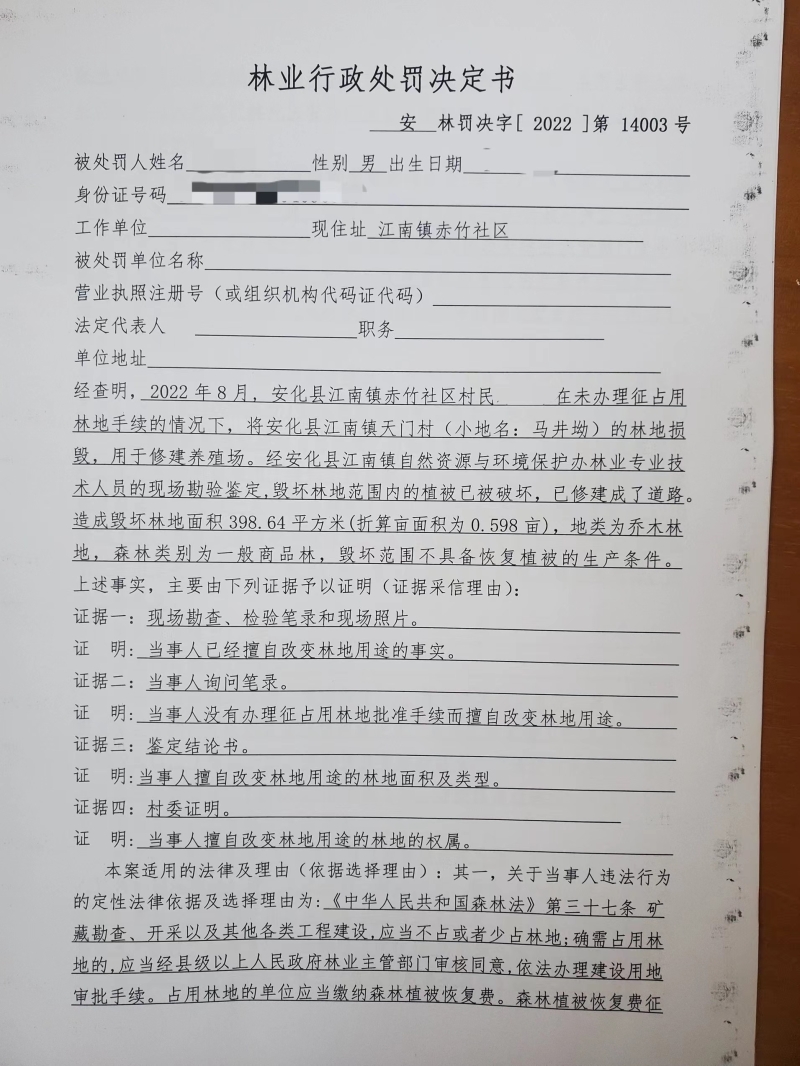 林业行政处罚决定书
安 林罚决字[ 2022 ]第 14003 号
被处罚人姓名 性别 男 出生日期
身份证号码
工作单位 现住址 江南镇赤竹社区
被处罚单位名称
营业执照注册号（或组织机构代码证代码）
法定代表人 职务
单位地址
经查明，2022 年 8 月，安化县江南镇赤竹社区村民 在未办理征占用
林地手续的情况下，将安化县江南镇天门村（小地名：马井坳）的林地损
毁，用于修建养殖场。经安化县江南镇自然资源与环境保护办林业专业技
术人员的现场勘验鉴定,毁坏林地范围内的植被已被破坏，已修建成了道路。
造成毁坏林地面积 398.64 平方米(折算亩面积为 0.598 亩)，地类为乔木林
地，森林类别为一般商品林，毁坏范围不具备恢复植被的生产条件。
上述事实，主要由下列证据予以证明（证据采信理由）：
证据一：现场勘查、检验笔录和现场照片。
证 明：当事人已经擅自改变林地用途的事实。
证据二：当事人询问笔录。
证 明：当事人没有办理征占用林地批准手续而擅自改变林地用途。
证据三：鉴定结论书。
证 明：当事人擅自改变林地用途的林地面积及类型。
证据四：村委证明。
证 明：当事人擅自改变林地用途的林地的权属。
本案适用的法律及理由（依据选择理由）：其一，关于当事人违法行为
的定性法律依据及选择理由为：《中华人民共和国森林法》第三十七条 矿
藏勘查、开采以及其他各类工程建设,应当不占或者少占林地;确需占用林
地的,应当经县级以上人民政府林业主管部门审核同意,依法办理建设用地
审批手续。占用林地的单位应当缴纳森林植被恢复费。森林植被恢复费征